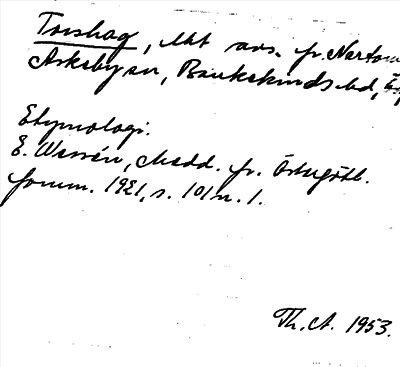 Torshag, Mkt avs. fr. Norton
Askeby sn, Bankekinds hd, Ög
Etymologi.
E. Wessén, Medd. fr. Östergötl.
fornm. 1921, s. 101 n. 1.
Th. A. 1953.